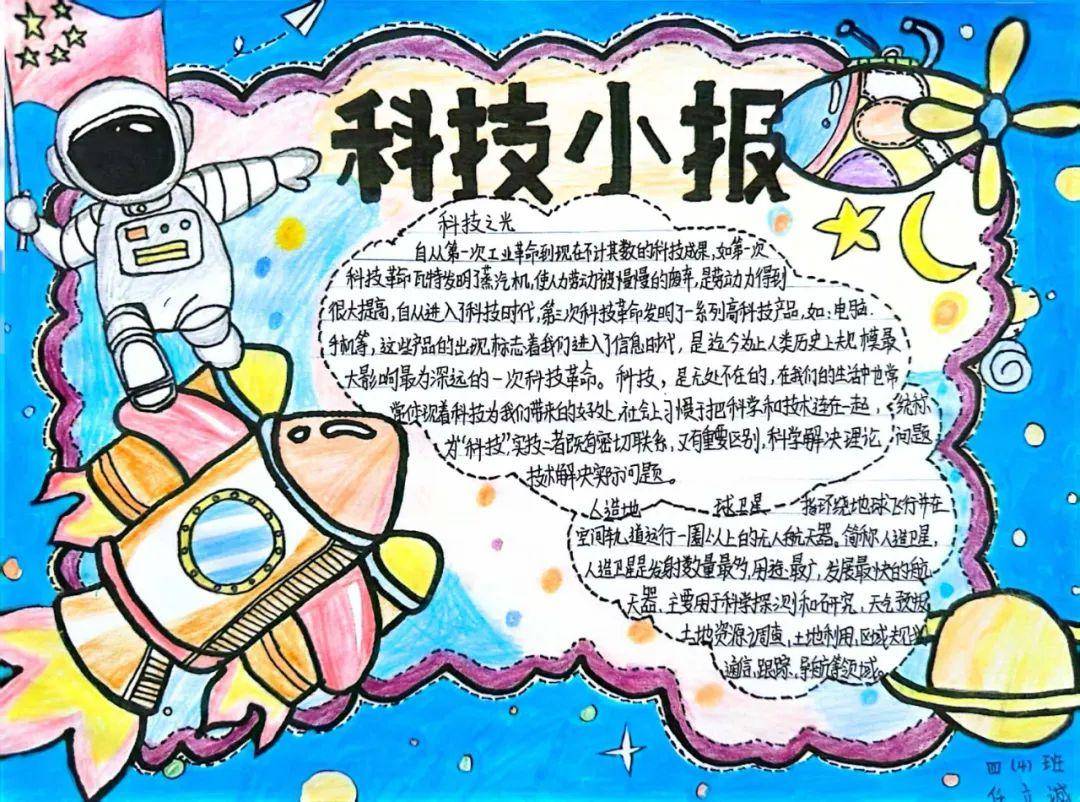 科技小报
科技之光
自从第一次工业革命到现在不计其数的科技成果,如第一次
科技革命瓦特发明了蒸汽机,使人力劳动被慢慢的废弃,是劳动力得到
很大提高,自从进入了科技时代,第三次科技革命发明了一系列高科技产品,如:电脑.
手机等,这些产品的出现标志着我们进入了信息时代,是迄今为止人类历史上规模最
大影响最为深远的一次科技革命。科技,是无处不在的,在我们的生活中也常
常体现着科技为我们带来的好处,社会上习惯于把科学和技术连在一起,统称
为"科技",实技二者既有密切联系,又有重要区别,科学解决理论问题
技术解决实际问题。
人造地球卫星 指环绕地球飞行并在
空间轨道运行一圈以上的无人航天器。简称人造卫星,
人造卫星是发射数量最多,用途最广,发展最快的航
天器,主要用于科学探测和研究,天气预报
土地资源调查,土地利用,区域规划
通信,跟踪,导航等领域。
四(4)班
任立诚